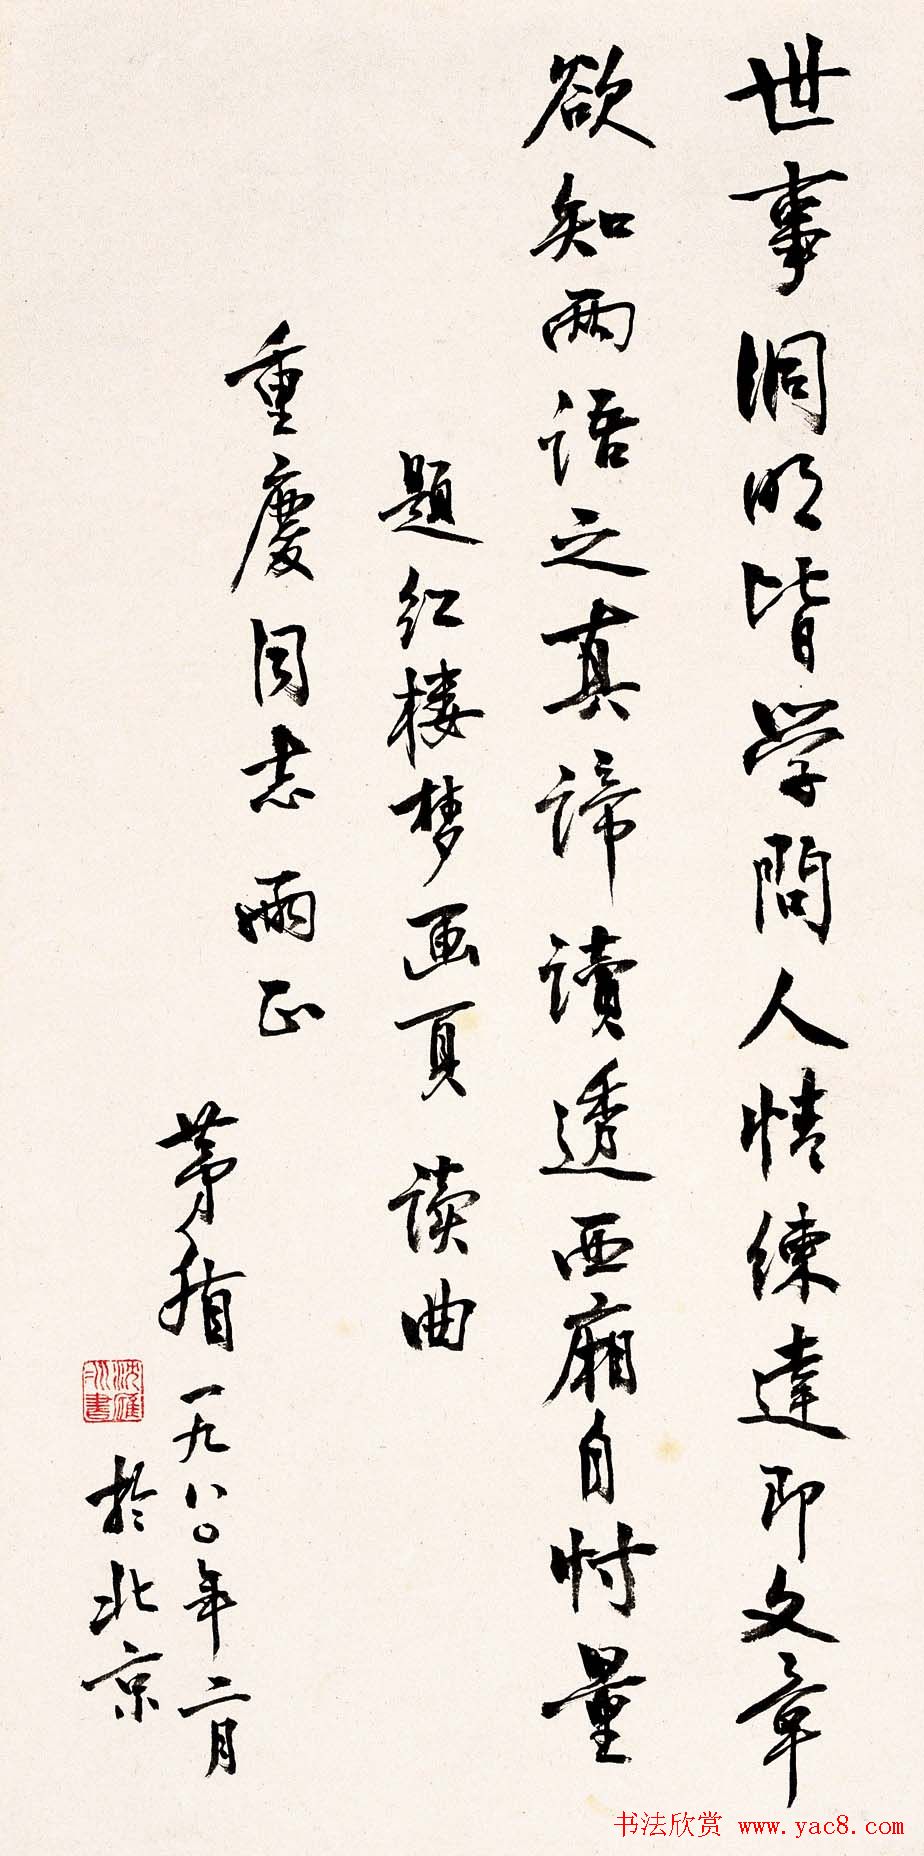 世事洞明皆学問人情練達即文章
欲知两语之真谛讀透西廂自忖量
題红楼梦画頁读曲
重慶同志正
茅盾一九八〇年二月
於北京
沈雁冰書
书法欣赏 www.yac8.com